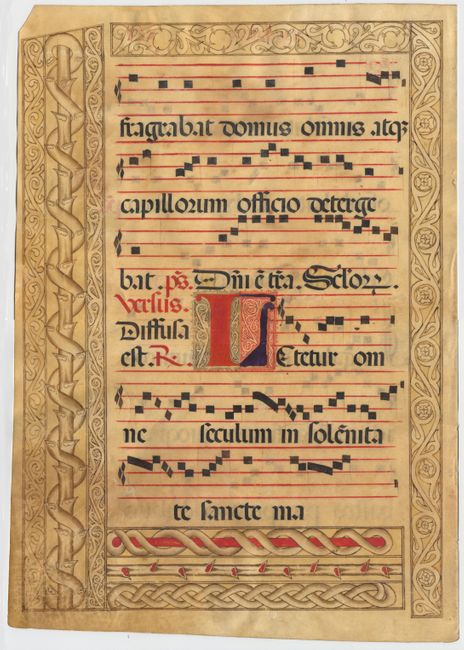 fragrabat domus omnis atqꝫ
capillorum officio deterge
bat . ps̄. Dn̄i ē tr̄a. Sc̄loꝝ.
Versus.
Diffusa
est. R. L Etetur om
ne seculum in solēnita
te sancte ma